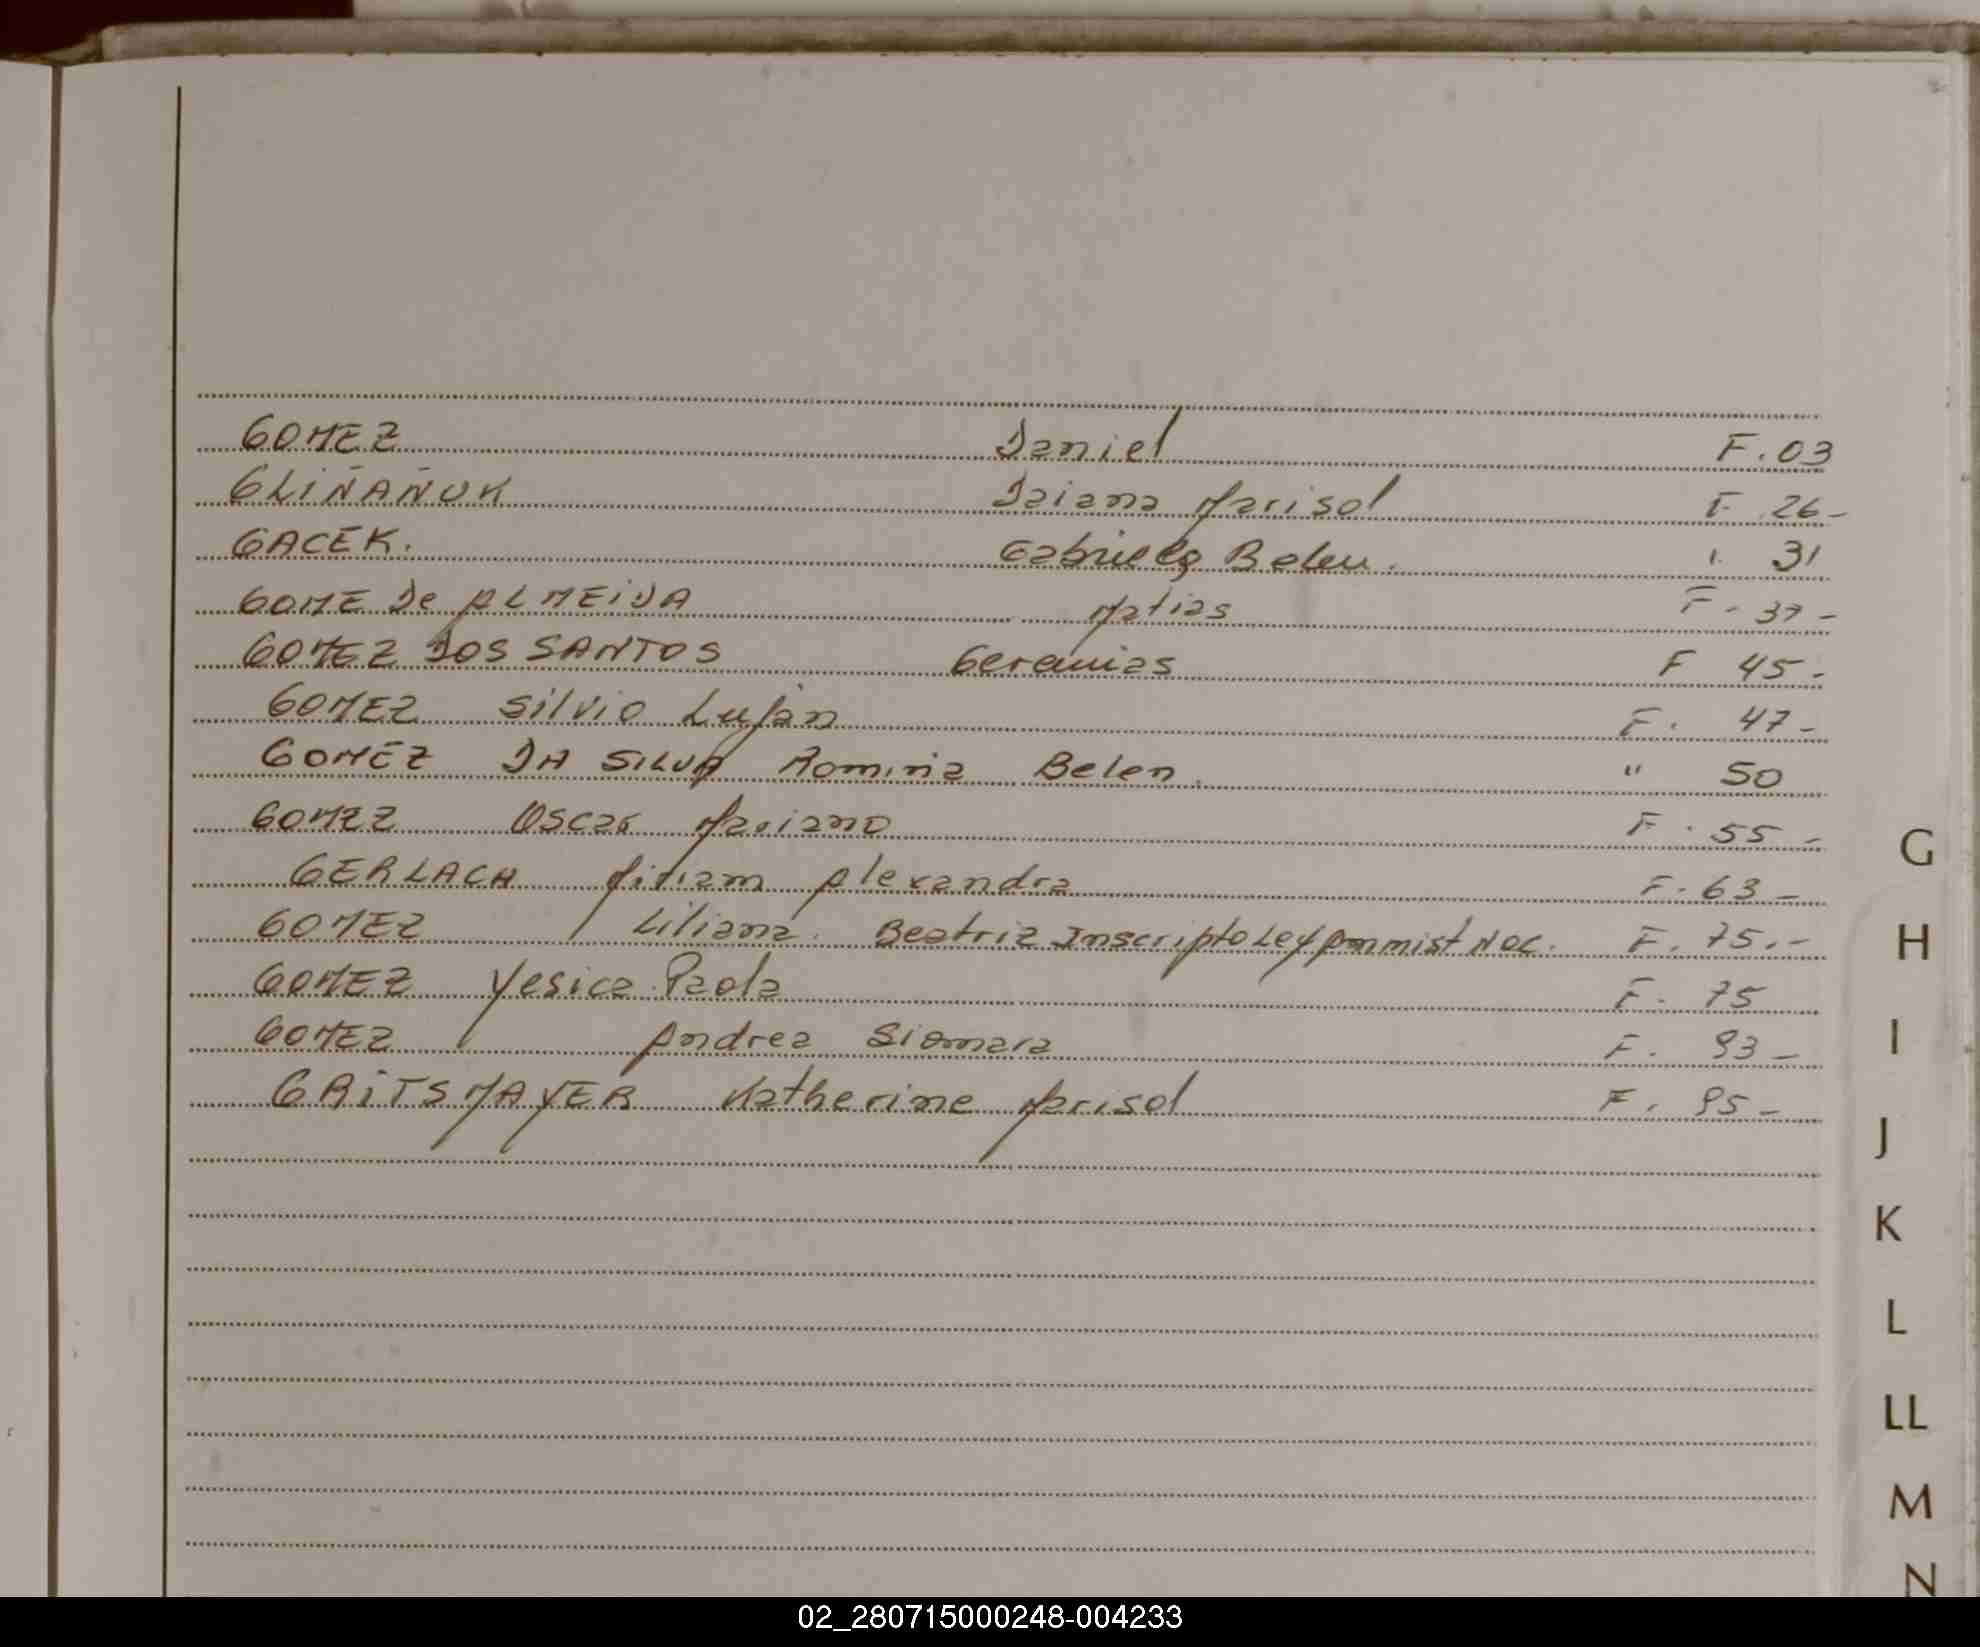 GOMEZ Daniel F. 03
GLIÑAÑUK Daiana Marisol F 26-
GACEK. Gabriela Belen. " 31
GOME De ALMEIDA Matias F. 37-
GOMEZ DOS SANTOS Geremias F 45-
GOMEZ Silvio Luján F. 47-
GOMEZ DA SILVA Romina Belen. " 50
GOMEZ Oscar Mariano F. 55-
GERLACH Miriam Alexandra F. 63-
GOMEZ Liliana. Beatriz Inscripto Ley Amnist Nac. F. 75.-
GOMEZ Yesica Paola F. 75
GOMEZ Andrea Siomara F. 93-
GRITSMAYER Katherine Marisol F. 95-
G
H
I
J
K
L
LL
M
N
02_280715000248-004233